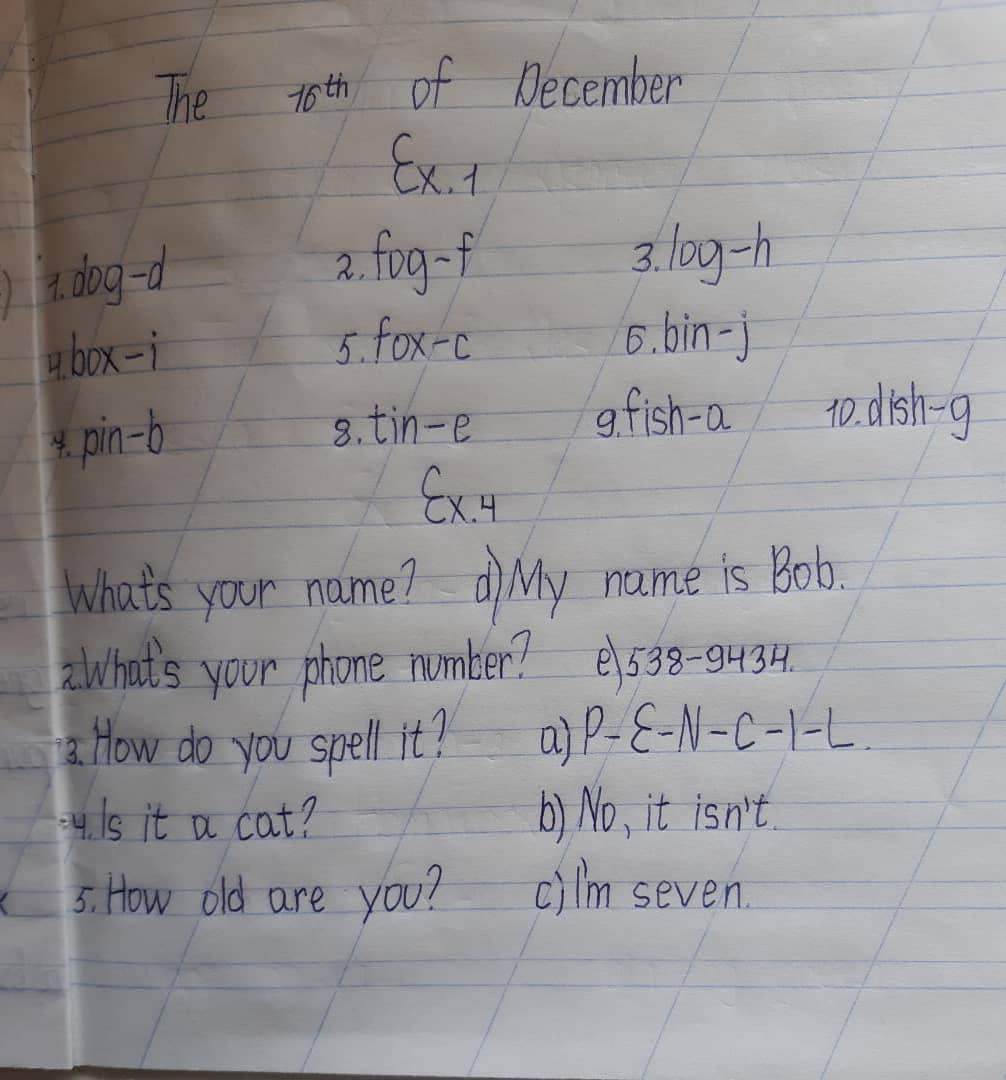 The 16th of December
Ex. 1
1. dog-d 2. fog-f 3. log-h
4. box-i 5. fox-c 6. bin-j
7. pin-b 8. tin-e 9. fish-a 10. dish-g
Ex. 4
What's your name? d) My name is Bob.
2. What's your phone number? e) 538-9434.
3. How do you spell it? a) P-E-N-C-I-L.
4. Is it a cat? b) No, it isn't.
5. How old are you? c) I'm seven.